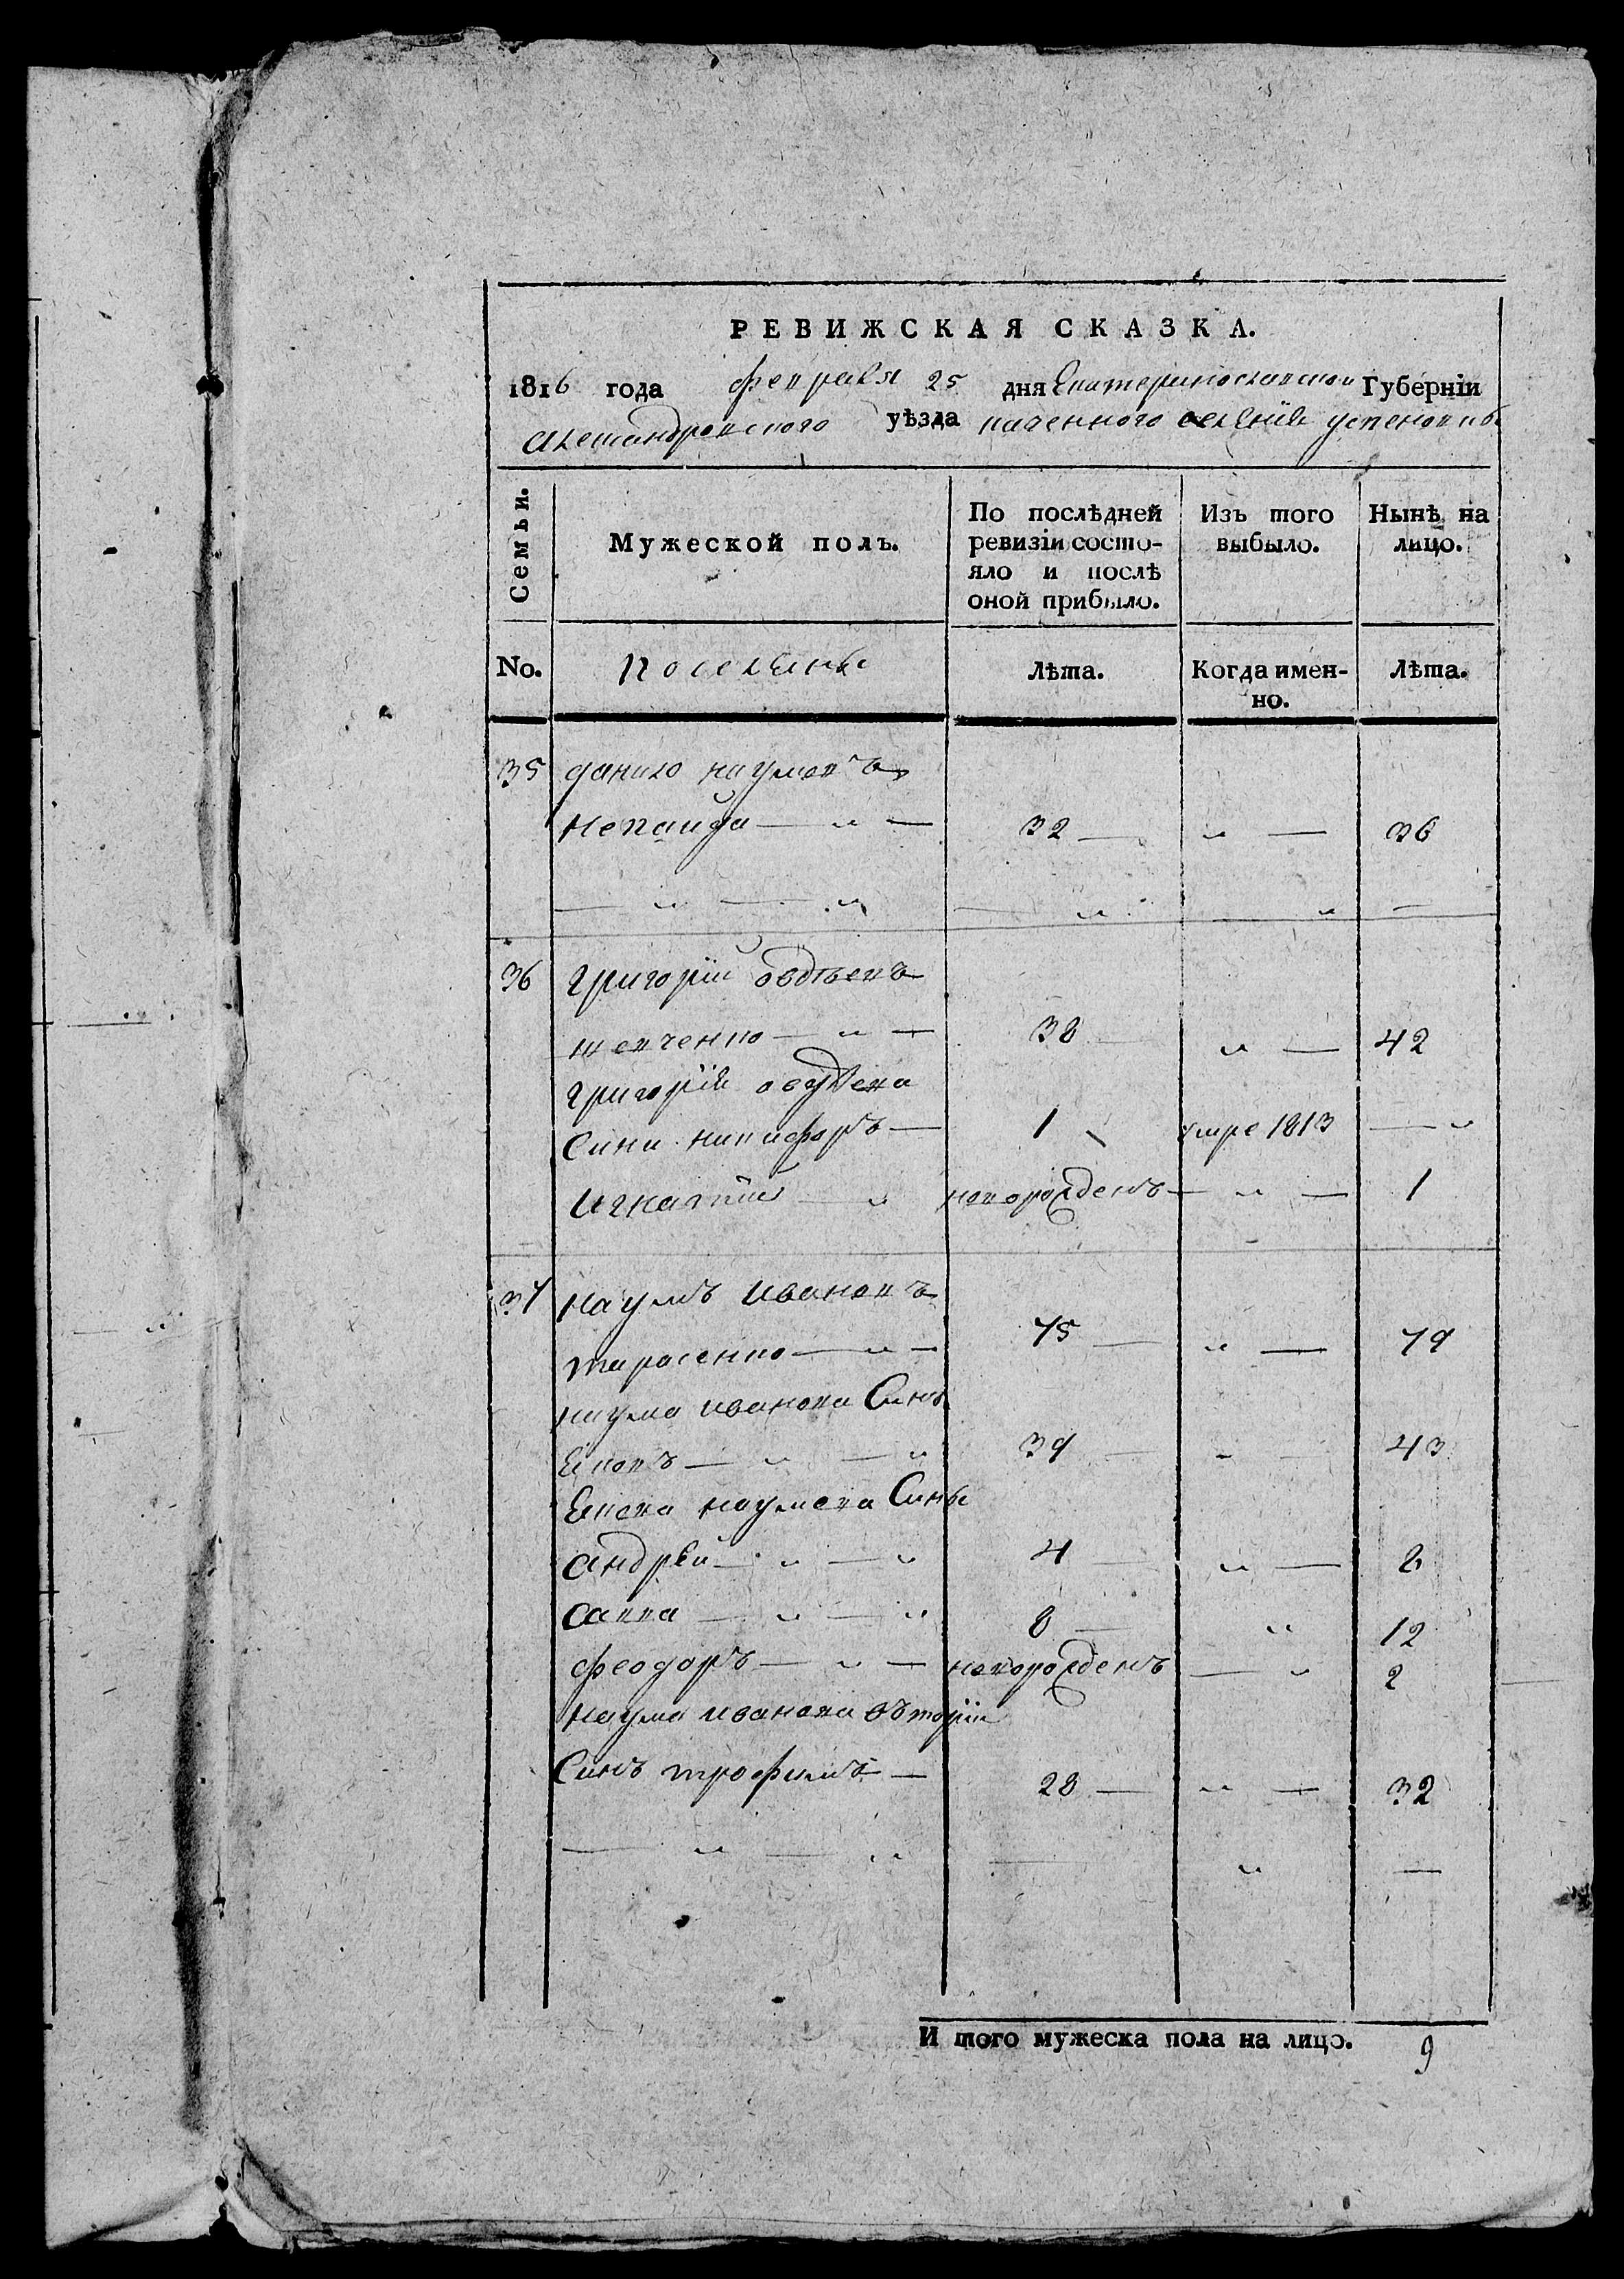 РЕВИЖСКАЯ СКАЗКА.
1816 года февраля 25 дня Екатеринославской Губерніи
Александровского уѣзда казенного селенія успеновки
Семьи.
Мужеской полъ.
По послѣдней ревизіи состояло и послѣ оной прибыло.
Изъ того выбыло.
Нынѣ на лицо.
No.
Поселяны
Лѣта.
Когда именно.
Лѣта.
35 данило наумовъ
Негайда — „ — 32 — „ — 36
— „ — „ — „ — „ —
36 григорій овдѣевъ
шевченко — „ — 38 — „ — 42
григорія овдѣева
Сини никифоръ — 1 умре 1813 — „
игнатій — „ новорожденъ — „ — 1
37 наумъ ивановъ
тарасенко — „ — 75 — „ — 79
наума иванова Синъ
— „ — „ 39 — „ — 43
наумова Сины
андрѣй — „ — „ 4 „ — 8
савва — „ — „ 8 — „ 12
феодоръ — „ — новорожденъ — „ 2
наума иванова вторій
Синъ трофимъ — 28 — „ — 32
— „ — „ — „ —
И того мужеска пола на лицо. 9